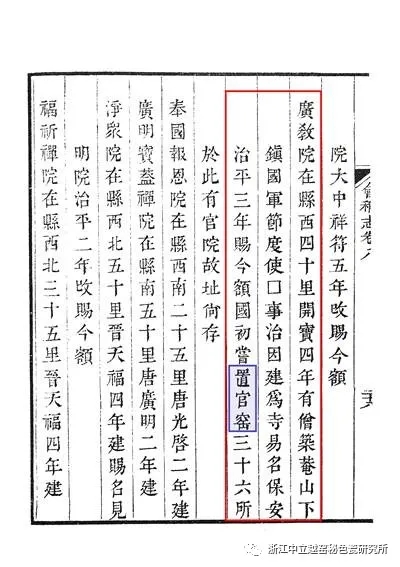 院大中祥符五年改賜今額
廣敎院在縣西四十里開寶四年有僧築菴山下
鎭國軍節度使口事治因建爲寺易名保安
治平三年賜今額國初嘗置官窑三十六所
於此有官院故址尙存
奉國報恩院在縣西南二十五里唐光啓二年建
廣明寶蓋禪院在縣南五十里唐廣明二年建
淨衆院在縣西北五十里晉天福四年建賜名見
明院治平二年改賜今額
福祈禪院在縣西北三十五里晉天福四年建
浙江中立越窑秘色瓷研究所